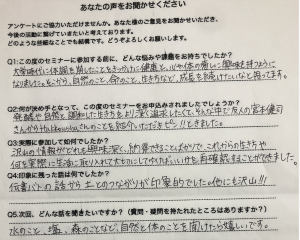 あなたの声をお聞かせください
アンケートにご協力いただけませんか。あなた様のご意見をお聞かせいただき、
今後の活動に繋げていきたいと考えております。
どのような些細なことでも結構です。どうぞよろしくお願いします。
Q1:この度のセミナーに参加する前に、どんな悩みや課題をお持ちでしたか?
大学時代に体調を崩したことをきっかけに健康と、心や体の癒しに興味を持つように
なりました。とかち、自然のこと、命のこと、生き方など、成長を続けたいなと思ってます。
Q2:何が決め手となって、この度のセミナーをお申込みされましたでしょうか?
発酵や自然と調和した生き方をより深く追求したくて、そんな中で友人の宮本健司
さんから のことを紹介いただきピン!ときました。
Q3:実際に参加して如何でしたか?
沢山の情報がどれも興味深く、納得できることばかりで、これからの生き方や
何を実際に生活に取り入れて大切にしてゆけばいいかを再確認することができました。
Q4:印象に残った話は何でしたか?
何書バトの話から土とのつながりが印象的でした。他にも沢山!!!
Q5:次回、どんな話を聞きたいですか?(質問・疑問を持たれたところはありますか?)
水のこと、塩、森のことなど、自然と体のことを聞けたら嬉しいです。